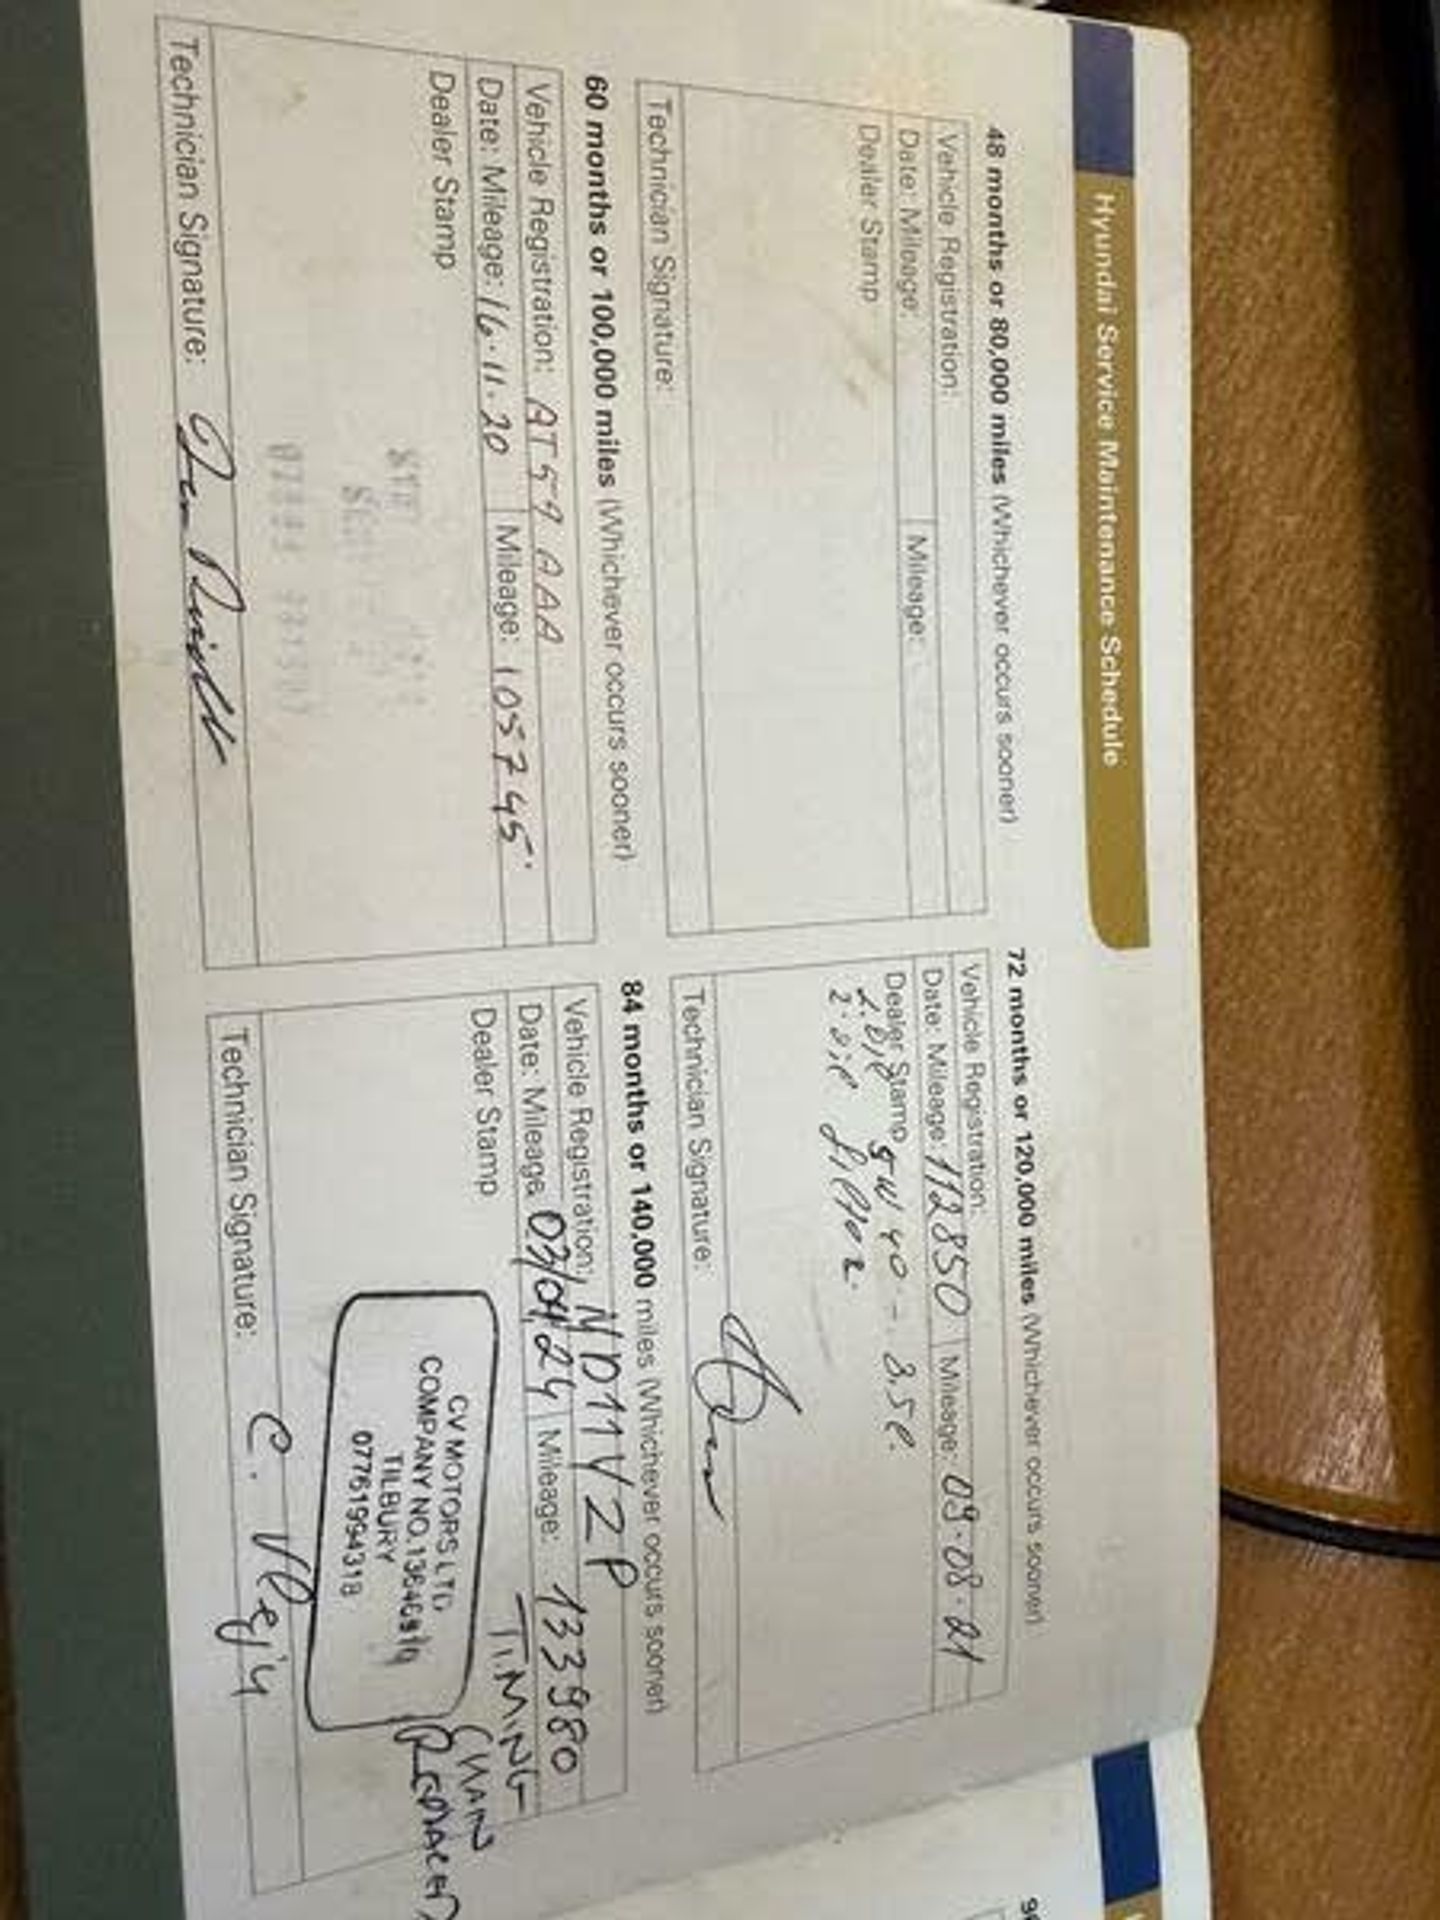 Hyundai Service Maintenance Schedule
48 months or 80,000 miles (Whichever occurs sooner)
Vehicle Registration:
Date: Mileage: Mileage:
Dealer Stamp
Technician Signature:
60 months or 100,000 miles (Whichever occurs sooner)
Vehicle Registration: AT59 AAA
Date: Mileage: 16.11.20 Mileage: 105745
Dealer Stamp
Technician Signature:
72 months or 120,000 miles (Whichever occurs sooner)
Vehicle Registration:
Date: Mileage: 112850 Mileage: 09.08.21
Dealer Stamp
5W40 - 3.5l.
Technician Signature:
84 months or 140,000 miles (Whichever occurs sooner)
Vehicle Registration: MD11VZP
Date: Mileage: 03/04/24 Mileage: 133980
Dealer Stamp
TIMING
CHAIN
REPLACED
CV MOTORS LTD
COMPANY NO.
TILBURY
07761994318
Technician Signature: